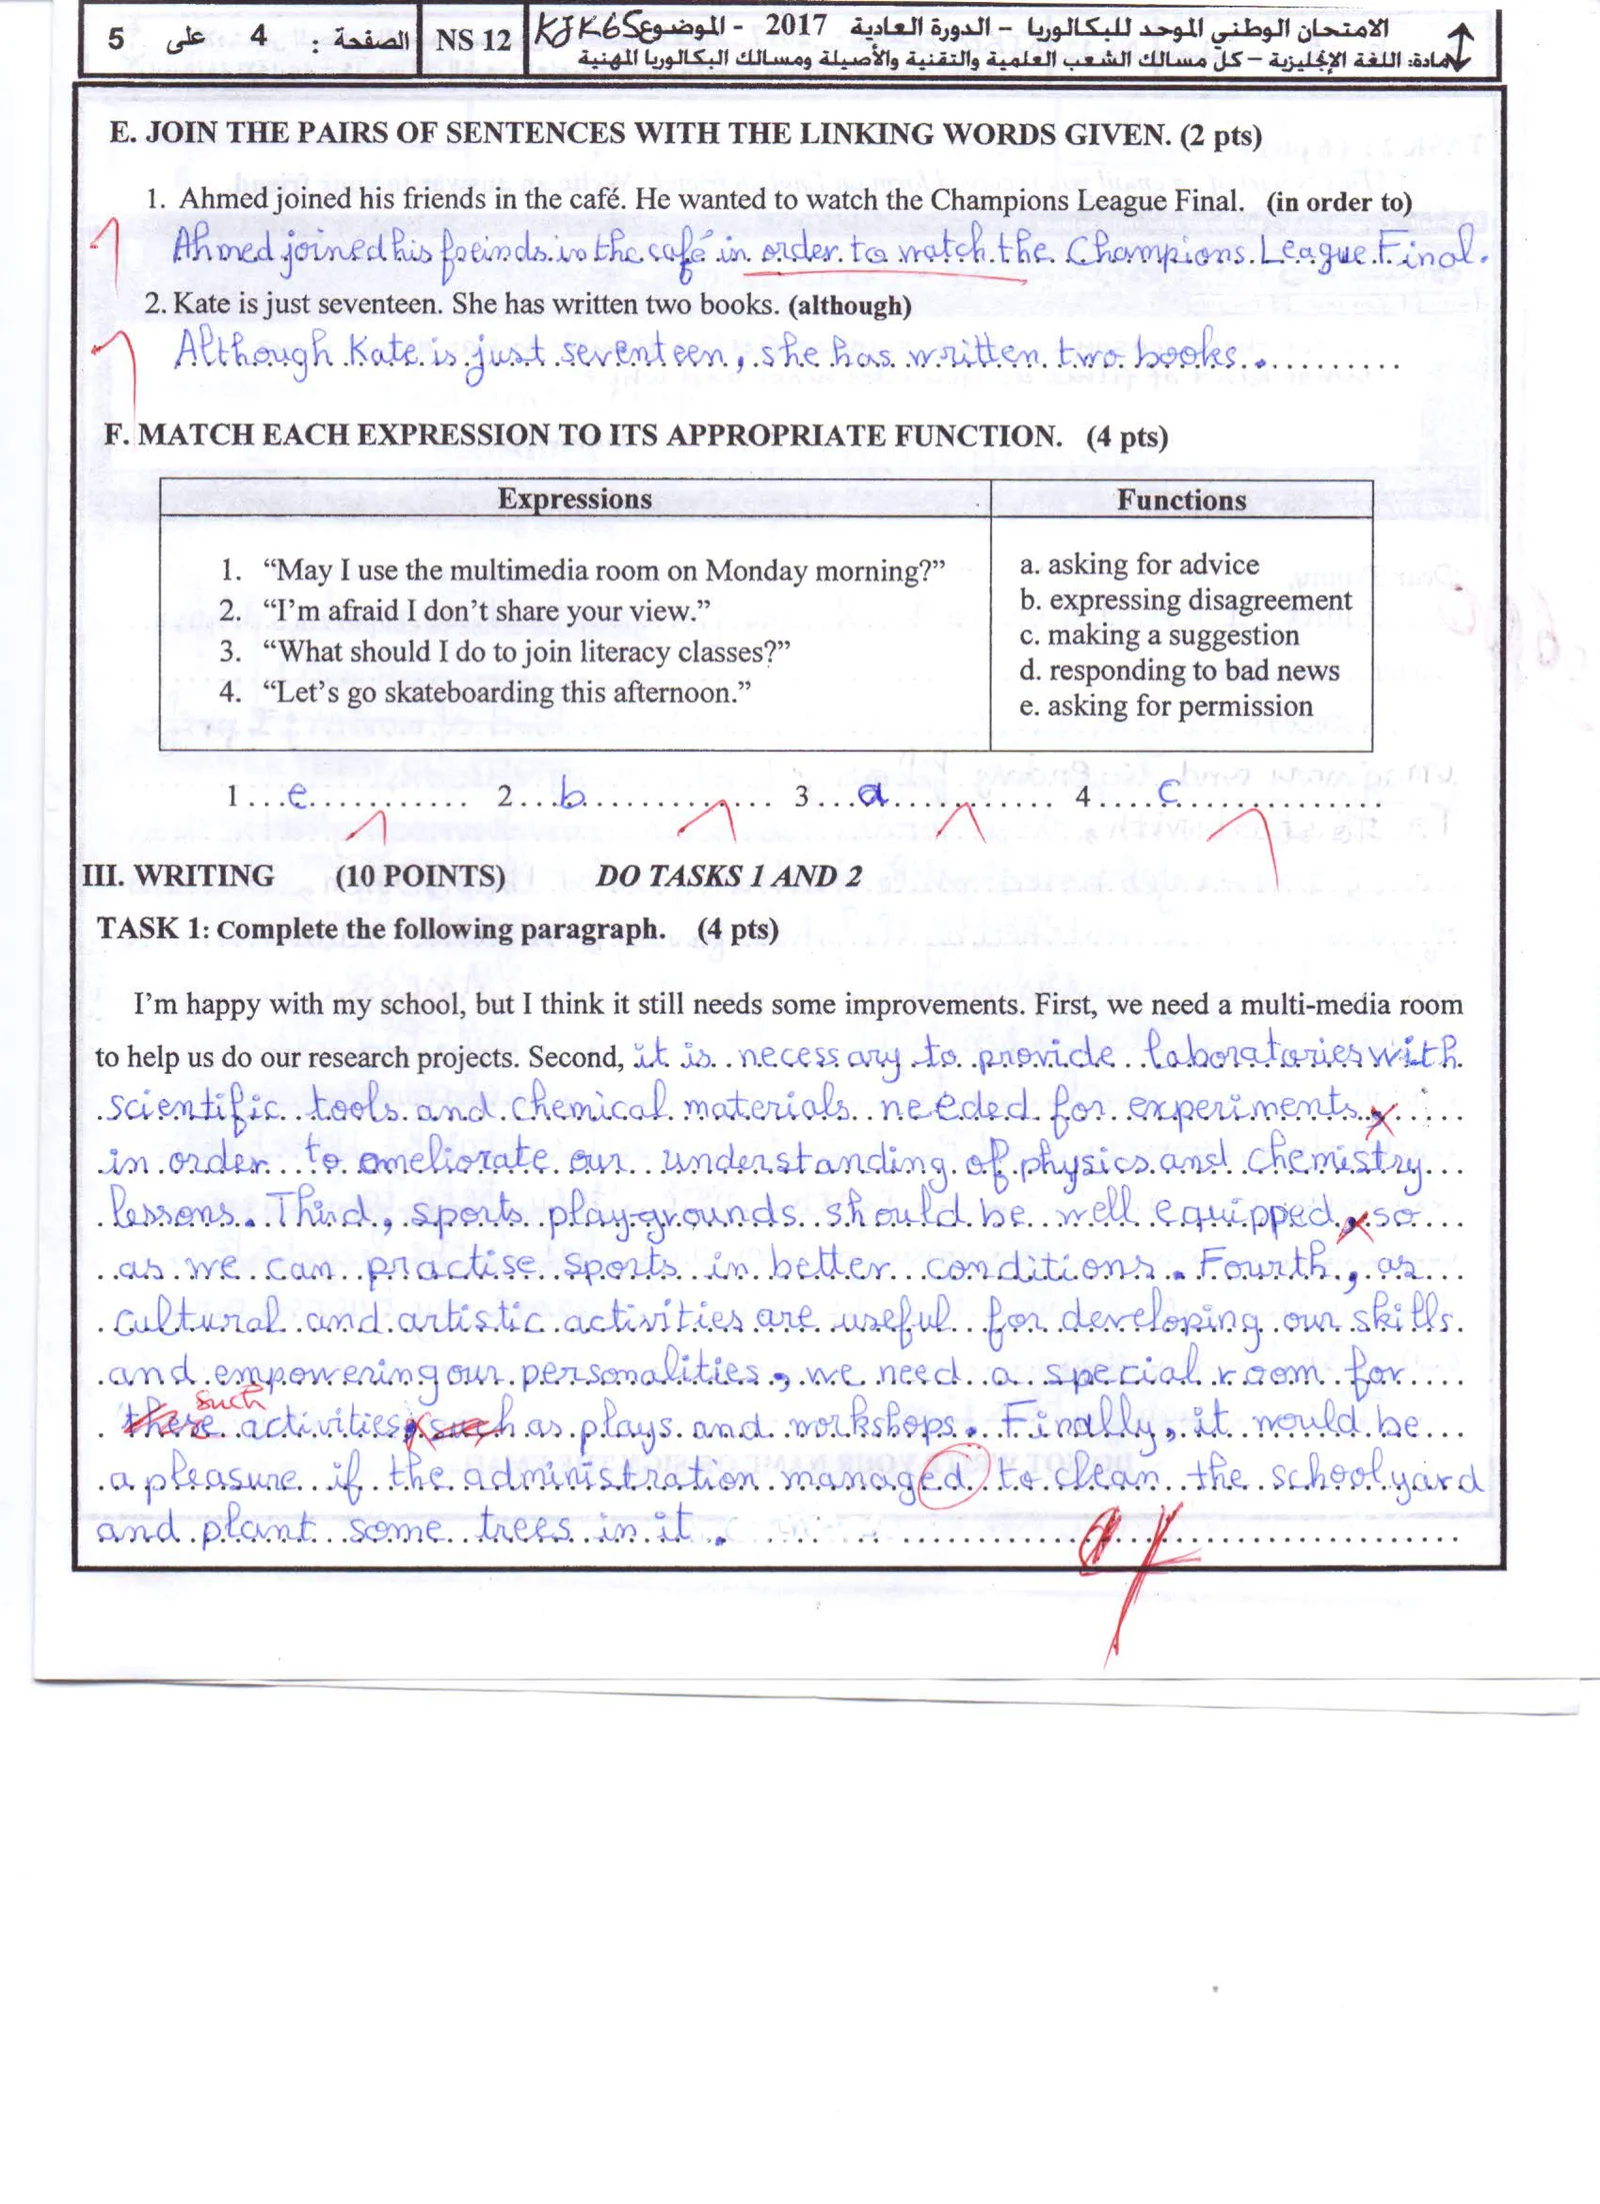 الامتحان الوطني الموحد للبكالوريا – الدورة العادية 2017 - الموضوع KJK65
مادة: اللغة الإنجليزية – كل مسالك الشعب العلمية والتقنية والأصيلة ومسالك البكالوريا المهنية
NS 12
الصفحة : 4 على 5
E. JOIN THE PAIRS OF SENTENCES WITH THE LINKING WORDS GIVEN. (2 pts)
1. Ahmed joined his friends in the café. He wanted to watch the Champions League Final. (in order to)
1
Ahmed joined his freinds in the café in order to watch the Champions League Final.
2. Kate is just seventeen. She has written two books. (although)
1
Although Kate is just seventeen, she has written two books.
F. MATCH EACH EXPRESSION TO ITS APPROPRIATE FUNCTION. (4 pts)
Expressions Functions
1. “May I use the multimedia room on Monday morning?” a. asking for advice
2. “I’m afraid I don’t share your view.” b. expressing disagreement
3. “What should I do to join literacy classes?” c. making a suggestion
4. “Let’s go skateboarding this afternoon.” d. responding to bad news
e. asking for permission
1...e............ 2...b............... 3...a............ 4....c...............
1 1 1 1
III. WRITING (10 POINTS) DO TASKS 1 AND 2
TASK 1: Complete the following paragraph. (4 pts)
I’m happy with my school, but I think it still needs some improvements. First, we need a multi-media room
to help us do our research projects. Second, it is necessary to provide laboratories with
scientific tools and chemical materials needed for experiments,
in order to ameliorate our understanding of physics and chemistry
lessons. Third, sports play-grounds should be well equipped, so
as we can practise sports in better conditions. Fourth, as
cultural and artistic activities are useful for developing our skills
and empowering our personalities, we need a special room for
such
these activities, such as plays and workshops. Finally, it would be
a pleasure if the administration managed to clean the schoolyard
and plant some trees in it.